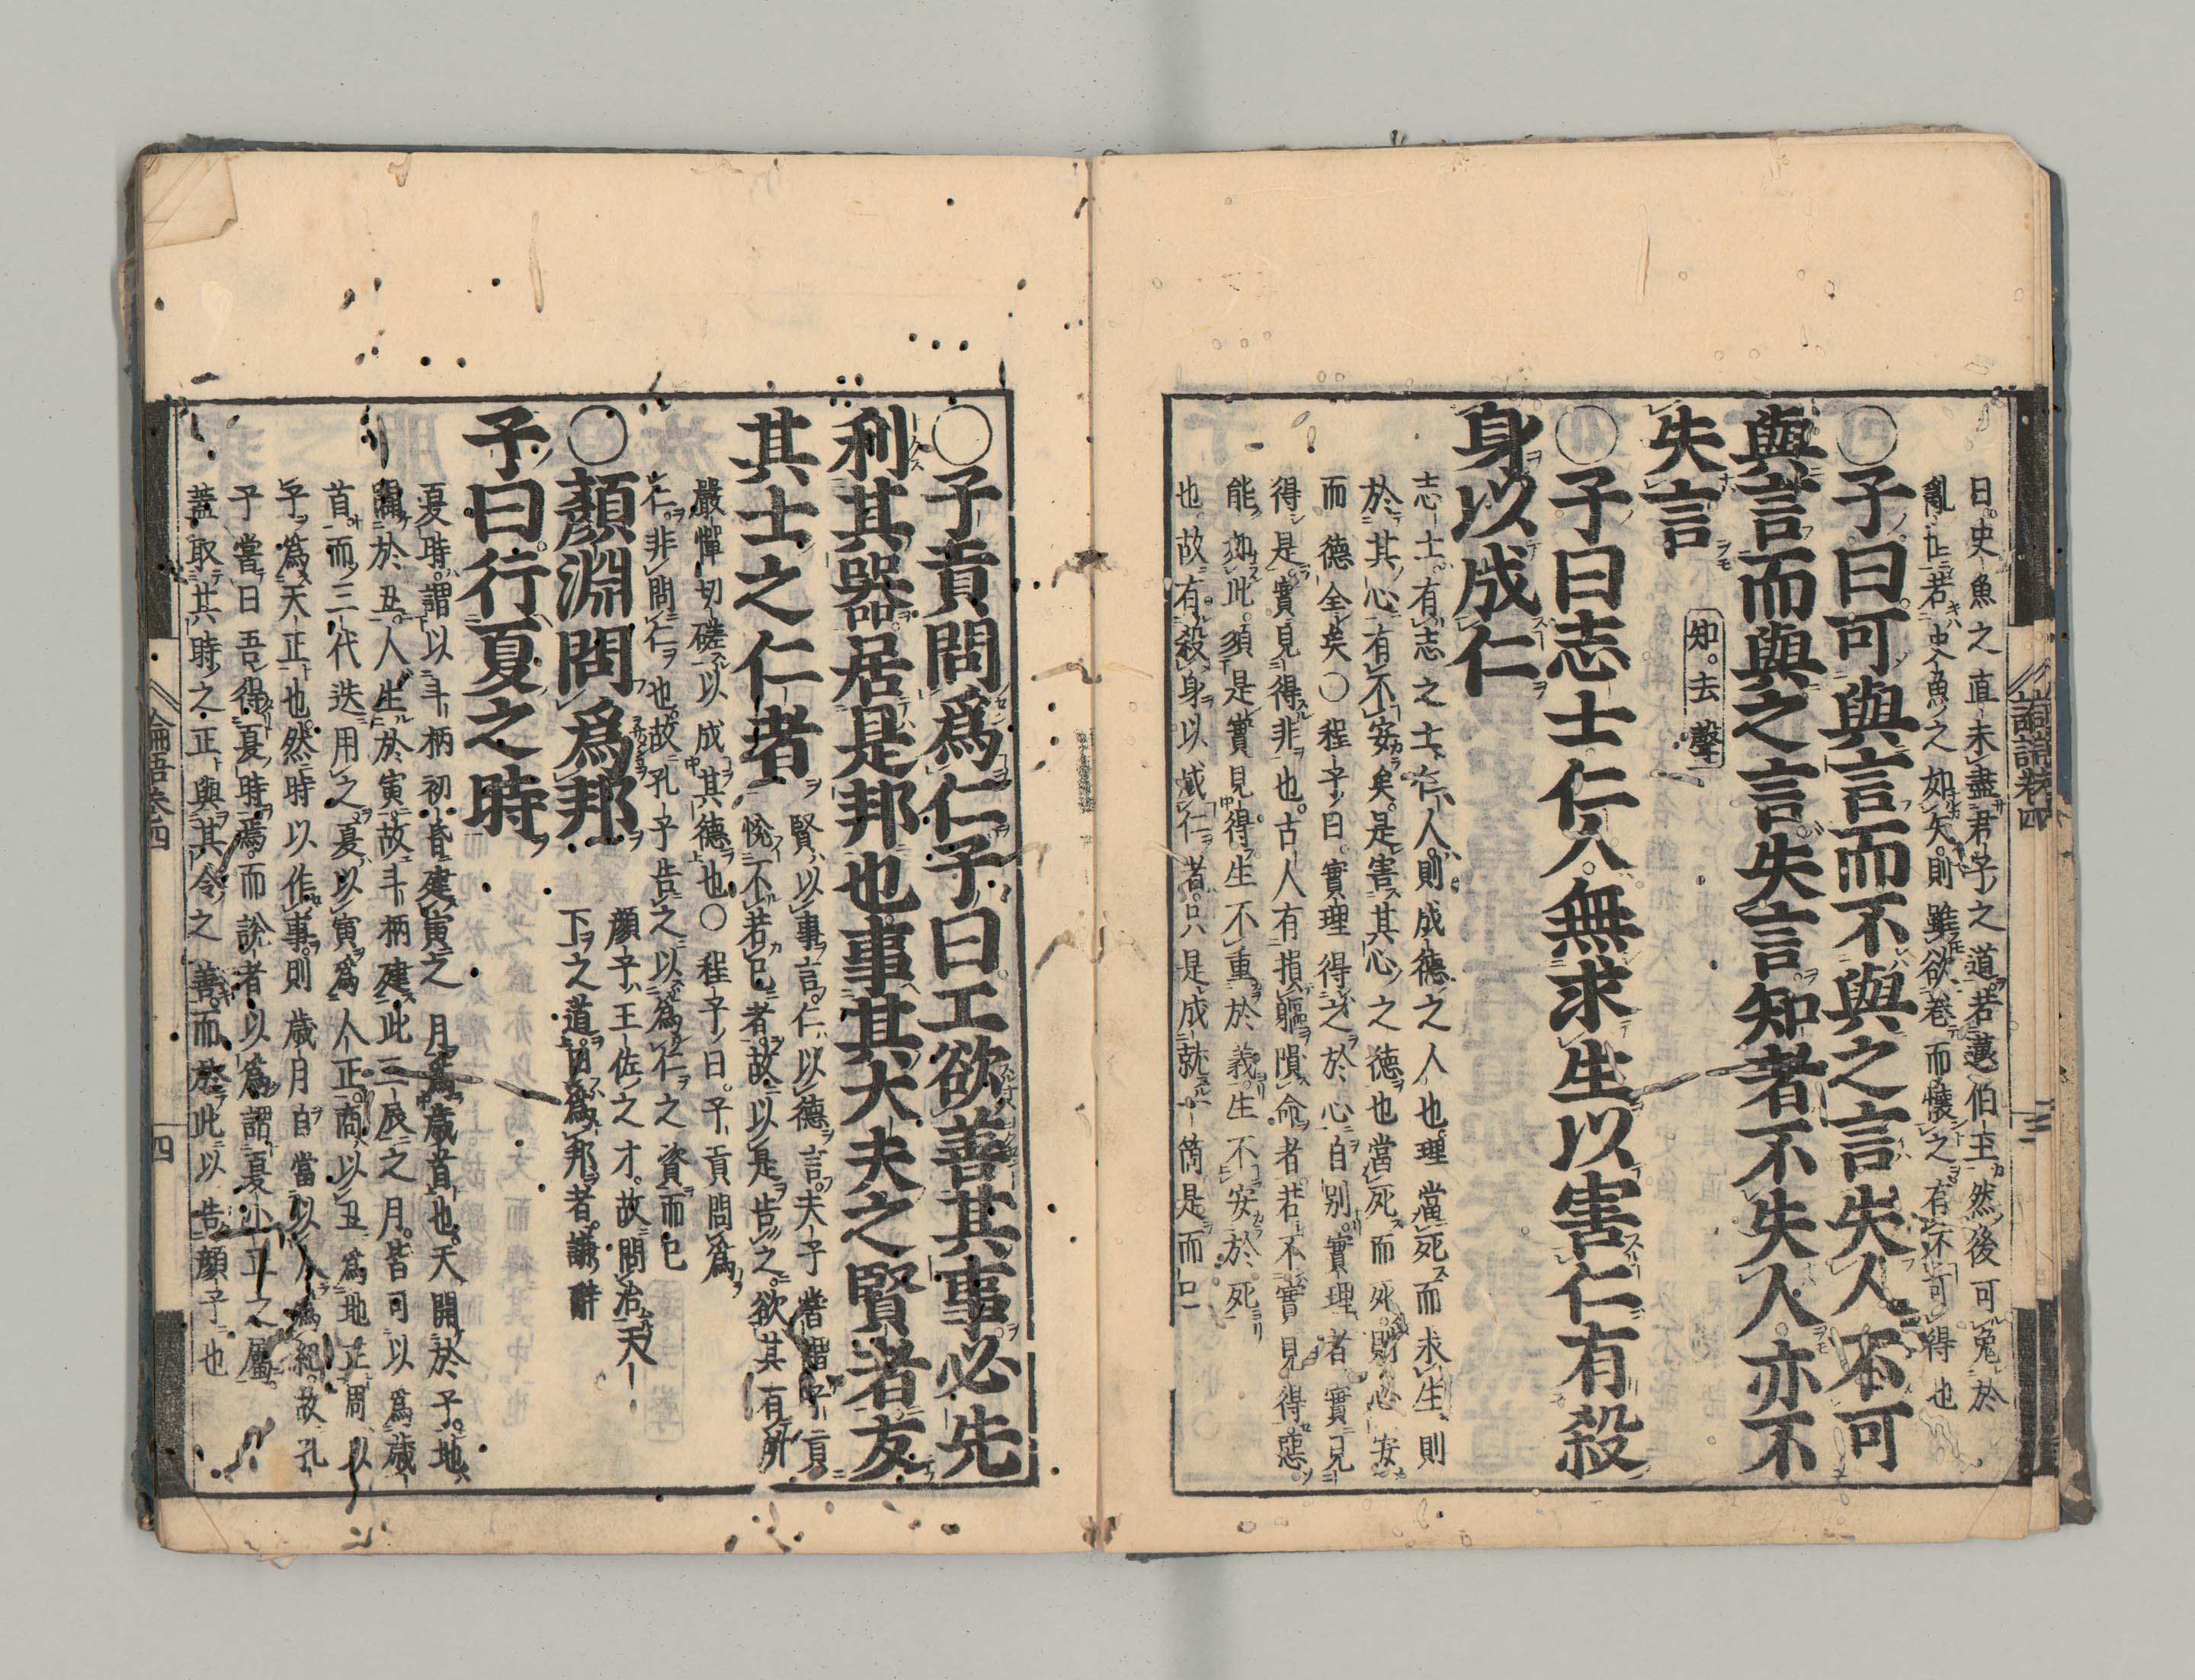 曰。史魚之直。未盡君子之道。若蘧伯玉。然後可免於
亂世。若史魚之如矢。則雖欲卷而懷之。有不可得也
○子曰可與言而不與之言失人不可
與言而與之言失言知者不失人亦不
失言
知。去聲
○子曰志士仁人無求生以害仁有殺
身以成仁
志士。有志之士。仁人。則成德之人也。理當死而求生。則
於其心有不安矣。是害其心之德也。當死而死。則心安
而德全矣○程子曰。實理得之於心自別。實理者。實見
得是。實見得非也。古人有損軀隕命者。若不實見得。惡
能如此。須是實見得。生不重於義。生不安於死
也。故有殺身以成仁者。只是成就一箇是而已
○子貢問爲仁子曰工欲善其事必先
利其器居是邦也事其大夫之賢者友
其士之仁者
賢。以事言。仁。以德言。夫子嘗謂子貢
悅不若己者。故以是告之。欲其有所
嚴憚切磋以成其德也○程子曰。子貢問爲
仁。非問仁也。故孔子告之以爲仁之資而已
○顏淵問爲邦
顏子。王佐之才。故問治天
下之道。曰爲邦者。謙辭
子曰行夏之時
夏時。謂以斗柄初昏建寅之月爲歲首也。天開於子。地
闢於丑。人生於寅。故斗柄建此三辰之月。皆可以爲歲
首。而三代迭用之。夏以寅爲人正。商以丑爲地正。周以
子爲天正也。然時以作事。則歲月自當以人爲紀。故孔
子嘗曰吾得夏時焉。而說者以爲謂夏小正之屬。
蓋取其時之正與其令之善。而於此以告顏子也
論語卷四
四